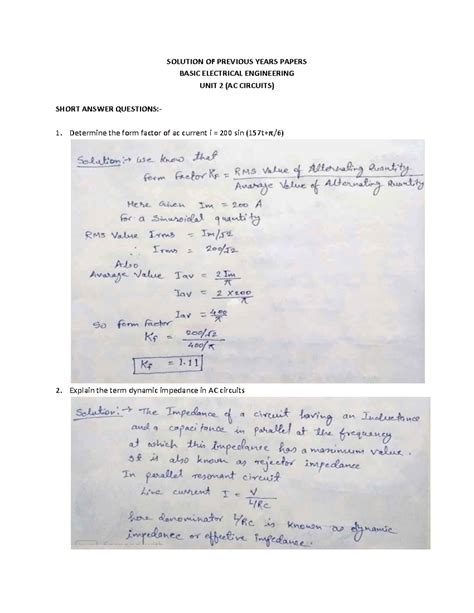 SOLUTION OF PREVIOUS YEARS PAPERS
BASIC ELECTRICAL ENGINEERING
UNIT 2 (AC CIRCUITS)
SHORT ANSWER QUESTIONS:-
1. Determine the form factor of ac current i = 200 sin (157t+π/6)
Solution:→ We know that
form factor Kf = RMS Value of Alternating Quantity / Average Value of Alternating Quantity
Here Given Im = 200 A
For a Sinusoidal quantity
RMS Value Irms = Im/√2
∴ Irms = 200/√2
Also
Average Value Iav = 2 Im / π
Iav = 2 × 200 / π
Iav = 400 / π
So form factor
Kf = 200/√2 / 400/π
Kf = 1.11
2. Explain the term dynamic impedance in AC circuits
Solution:→ The Impedance of a circuit having an Inductance
and a capacitance in parallel at the frequency
at which this Impedance has a maximum value.
It is also known as rejector impedance
In parallel resonant circuit
Line current I = V / L/RC
here denominator L/RC is known as dynamic
impedance or effective impedance.